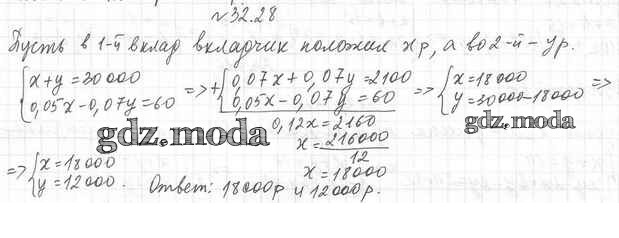 №32.28
Пусть в 1-й вклад вкладчик положил x р, а во 2-й – y р.
{x+y=30000 {0,05x-0,07y=60 => + {0,07x+0,07y=2100 {0,05x-0,07y=60 => {x=18000 {y=30000-18000 =>
0,12x=2160
gdz.moda
gdz.moda
x=216000/12
=> {x=18000 {y=12000.
x=18000
Ответ: 18000р и 12000р.